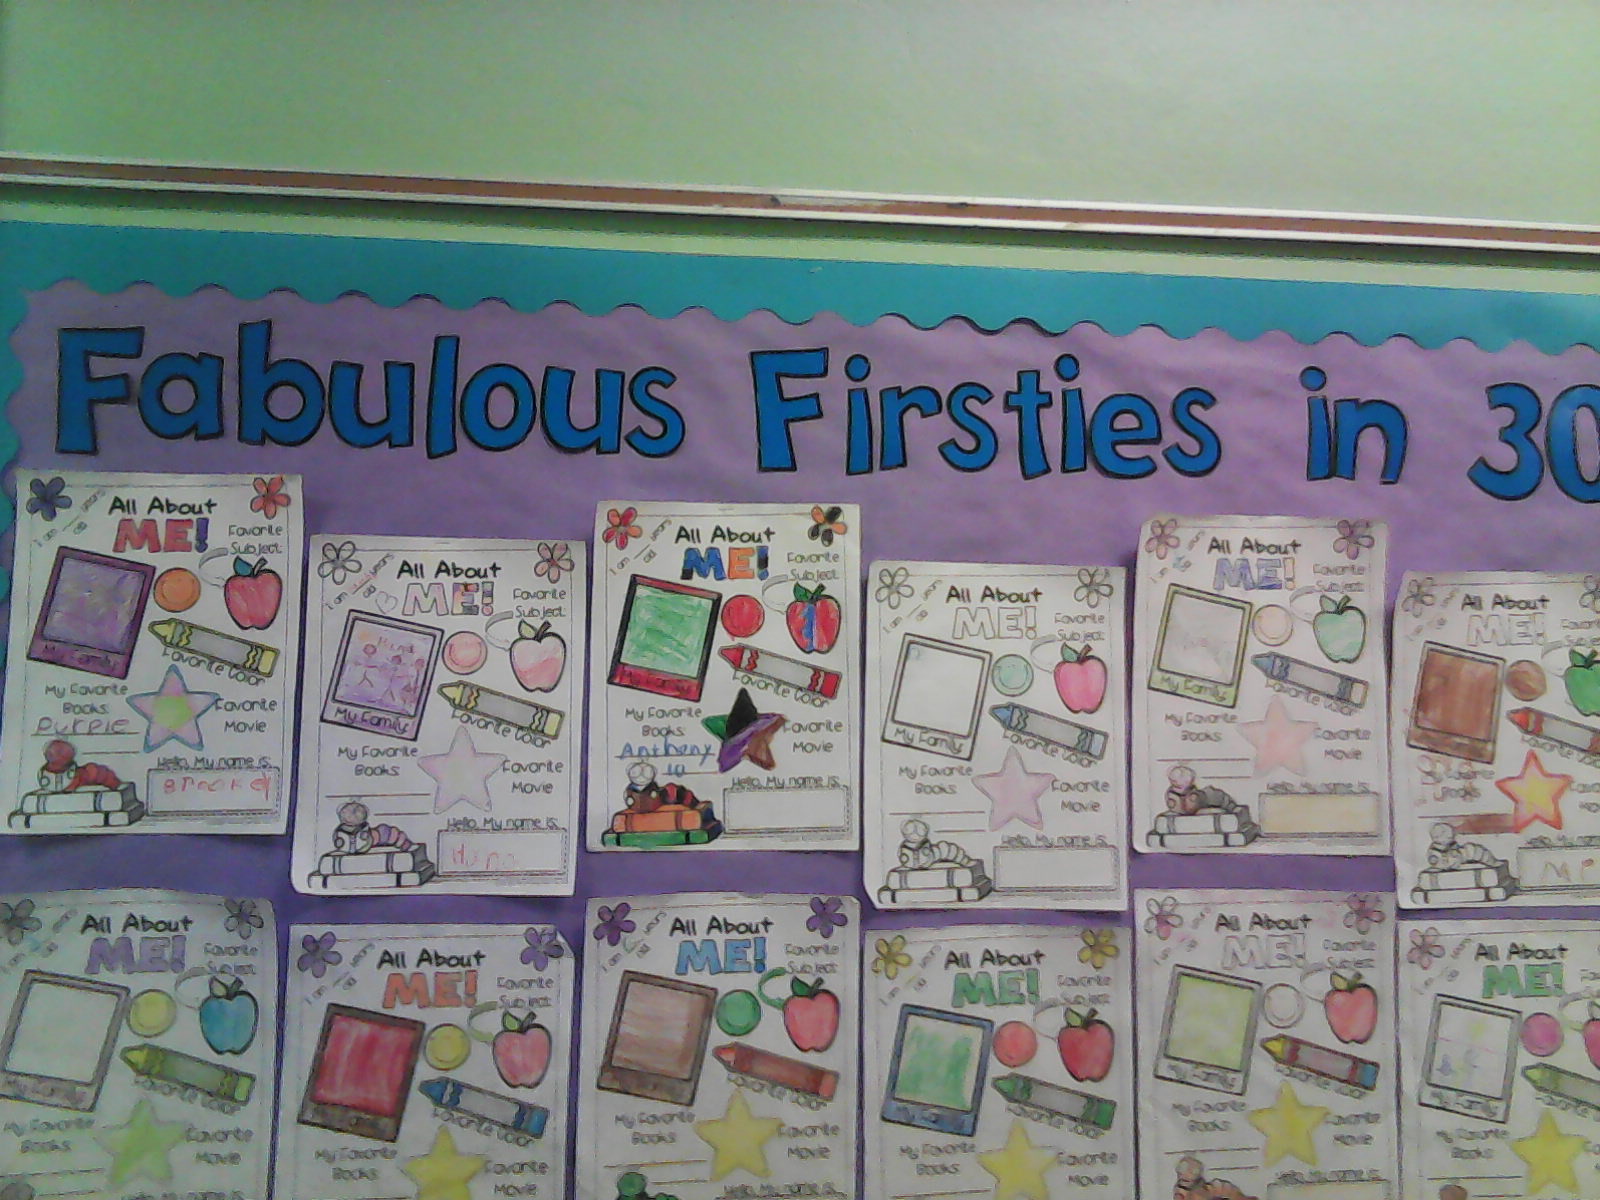 Fabulous Firsties in 30
All About
ME!
I am years old
Favorite Subject
My Family
Favorite Color
My Favorite Books
purple
Favorite Movie
Hello, My name is:
Brooke
All About
ME!
I am years old
Favorite Subject
My Family
Favorite Color
My Favorite Books
Favorite Movie
Hello, My name is:
Hana
All About
ME!
I am years old
Favorite Subject
My Family
Favorite Color
My Favorite Books
Anthony
10
Favorite Movie
Hello, My name is:
All About
ME!
I am years old
Favorite Subject
My Family
Favorite Color
My Favorite Books
Favorite Movie
Hello, My name is:
All About
ME!
I am
Favorite Subject
My Family
Favorite Color
My Favorite Books
Favorite Movie
Hello, My name is:
All About
ME!
Favorite Color
Books
Hello, My name is:
All About
ME!
Favorite Subject
My Family
Favorite Color
My Favorite Books
Favorite Movie
Hello, My name is:
All About
ME!
I am years old
Favorite Subject
My Family
Favorite Color
My Favorite Books
Favorite Movie
All About
ME!
I am years old
Favorite Subject
Favorite Color
My Favorite Books
Favorite Movie
Hello, My name is:
All About
ME!
I am years old
Favorite Subject
My Family
Favorite Color
My Favorite Books
Favorite Movie
All About
ME!
Favorite Subject
My Family
Favorite Color
My Favorite Books
Favorite Movie
Hello, My name is:
All About
ME!
My Family
Favorite Color
My Favorite Books